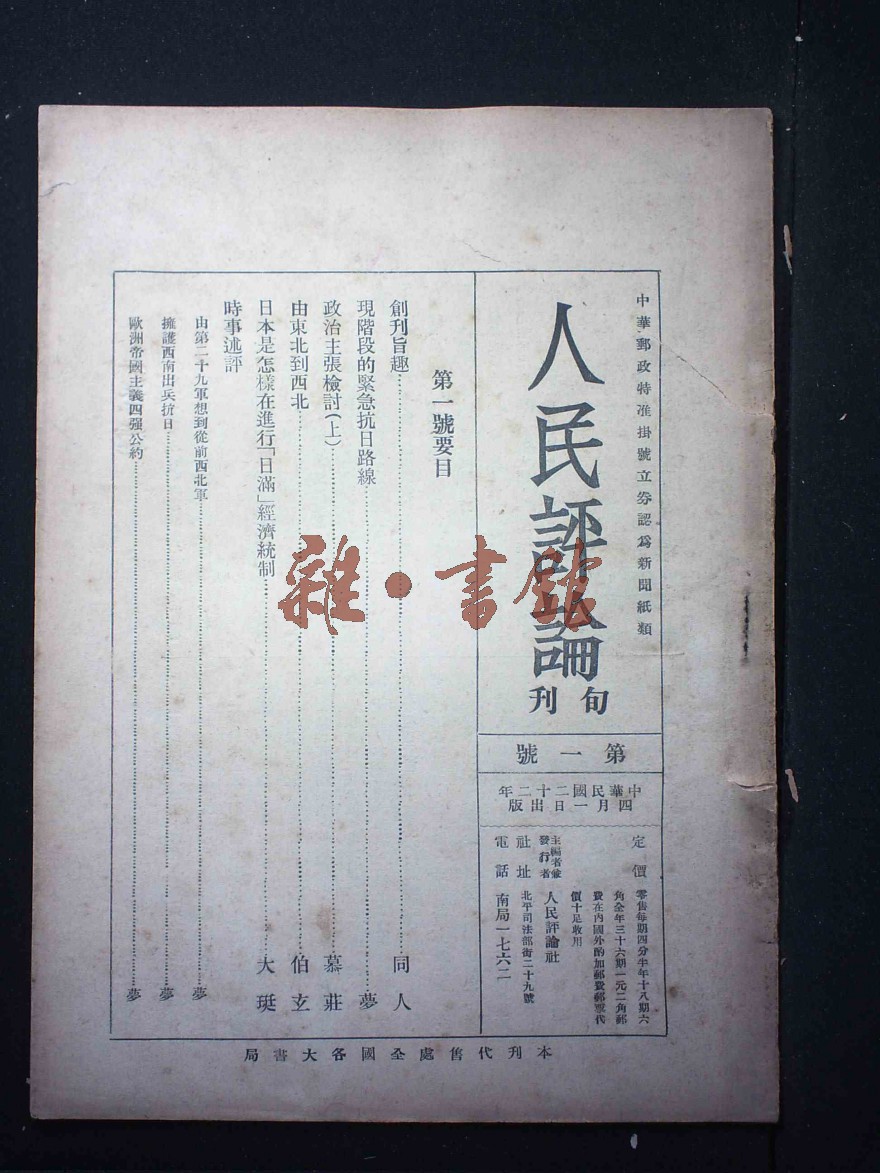 中華郵政特准掛號立券認爲新聞紙類
人民評論
旬刊
第一號
中華民國二十二年
四月一日出版
定價
零售每期四分半年十八期六
角全年三十六期一元二角郵
費在內國外酌加郵費郵票代
價十足收用
主編者兼
發行者
人民評論社
社址
北平司法部街二十九號
電話
南局一七六二
第一號要目
創刊旨趣 同人
現階段的緊急抗日路線 夢
政治主張檢討(上) 慕莊
由東北到西北 伯玄
日本是怎樣在進行「日滿」經濟統制 大珽
時事述評
由第二十九軍想到從前西北軍 夢
擁護西南出兵抗日 夢
歐洲帝國主義四强公約 夢
本刊代售處全國各大書局
雜·書館